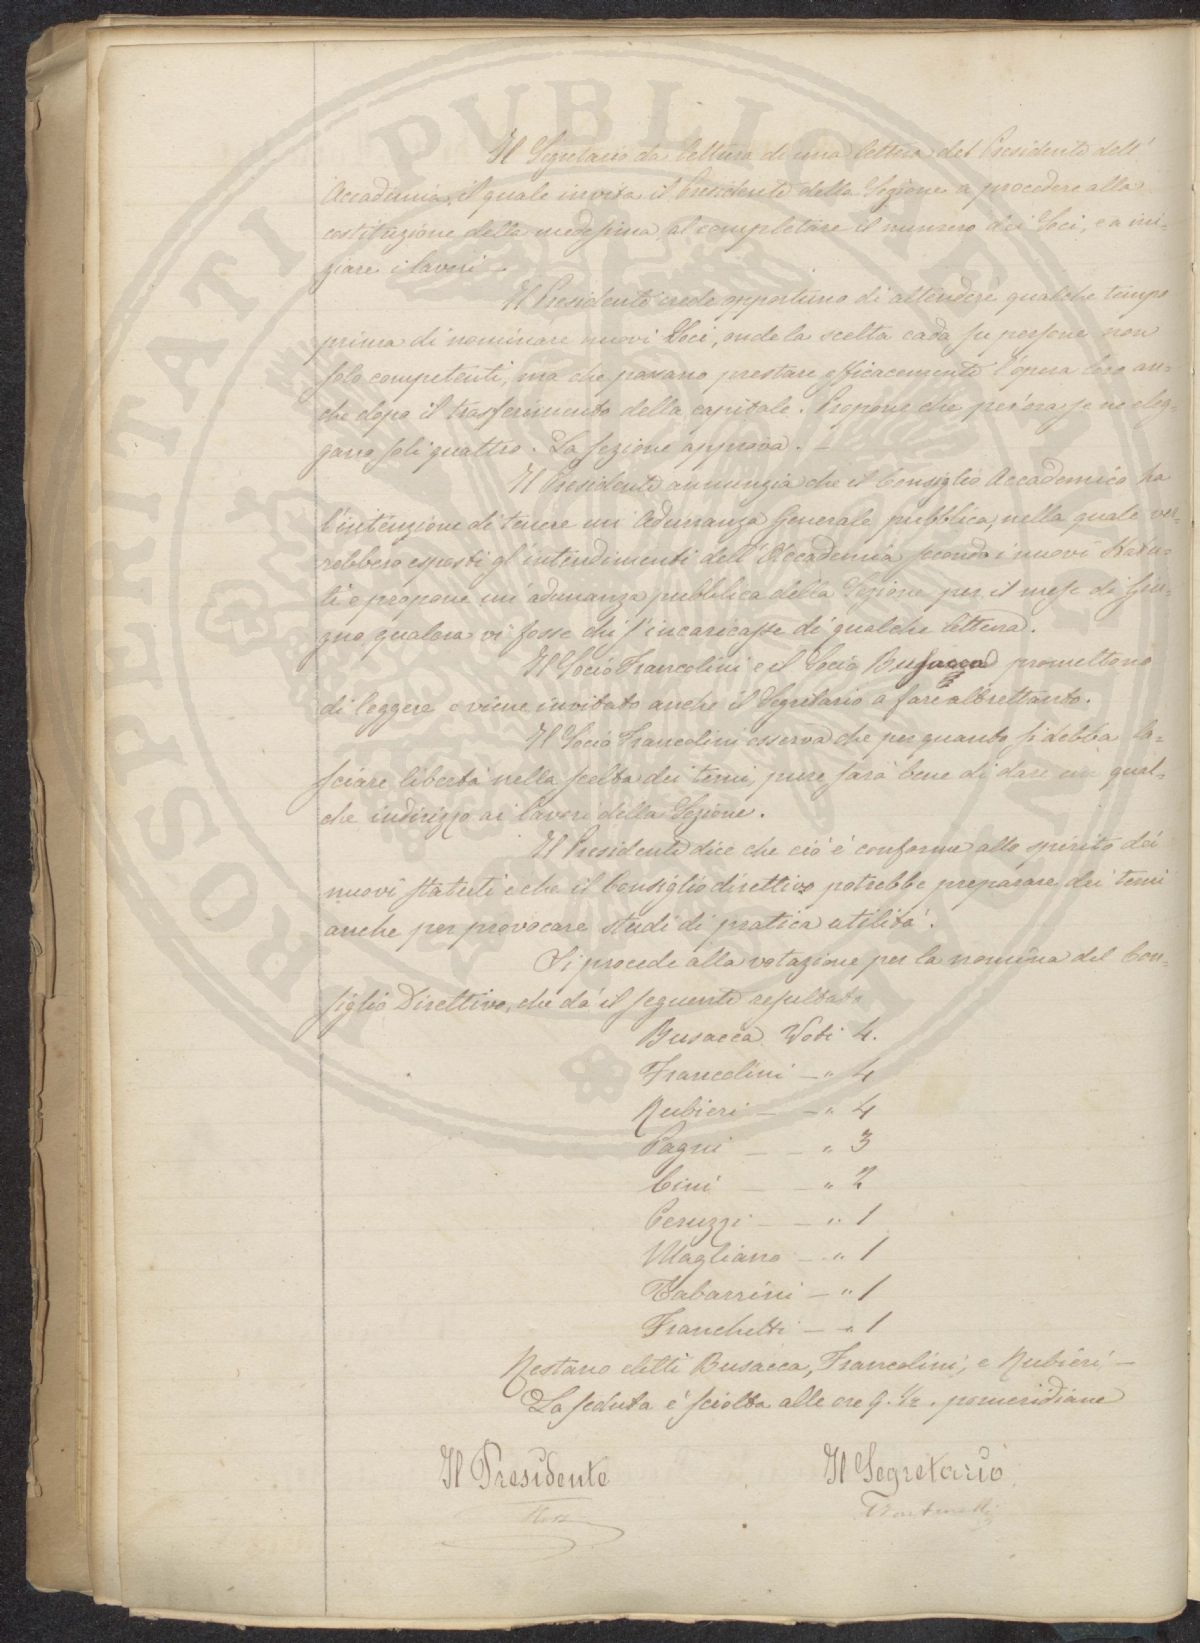 Il Segretario da lettura di una lettera del Presidente dell'
Accademia, il quale invita il Presidente della Sezione a procedere alla
costituzione della medesima, al completare il numero dei Soci, e a ini-
ziare i lavori —
Il Presidente crede opportuno di attendere qualche tempo
prima di nominare nuovi Soci, onde la scelta cada su persone non
solo competenti, ma che possano prestare efficacemente l'opera loro an-
che dopo il trasferimento della capitale. Propone che per ora se ne eleg-
gano soli quattro. La sezione approva. —
Il Presidente annunzia che il Consiglio Accademico ha
l'intenzione di tenere un'adunanza Generale pubblica, nella quale ver-
rebbero esposti gl'intendimenti dell'Accademia secondo i nuovi Statu-
ti e propone un'adunanza pubblica della Sezione per il mese di Giu-
gno qualora vi fosse chi s'incaricasse di qualche lettura.
Il Socio Francolini e il Socio Busacca promettono
di leggere e viene invitato anche il Segretario a fare altrettanto.
Il Socio Francolini osserva che per quanto si debba la-
sciare libertà nella scelta dei temi, pure sarà bene di dare un qual-
che indirizzo ai lavori della Sezione.
Il Presidente dice che ciò è conforme allo spirito dei
nuovi statuti e che il Consiglio direttivo potrebbe preparare dei temi
anche per provocare studi di pratica utilità.
Si procede alla votazione per la nomina del Con-
siglio Direttivo, che dà il seguente resultato
Busacca Voti 4.
Francolini — " 4
Rubieri — — " 4
Pagni — — " 3
Cini — — " 2
Peruzzi — — " 1
Magliano — " 1
Tabarrini — " 1
Franchetti — " 1
Restano eletti Busacca, Francolini, e Rubieri —
La seduta è sciolta alle ore 9. 1/2. pomeridiane
Il Presidente
Il Segretario
PROSPERITATI PUBLICAE AUGENDAE